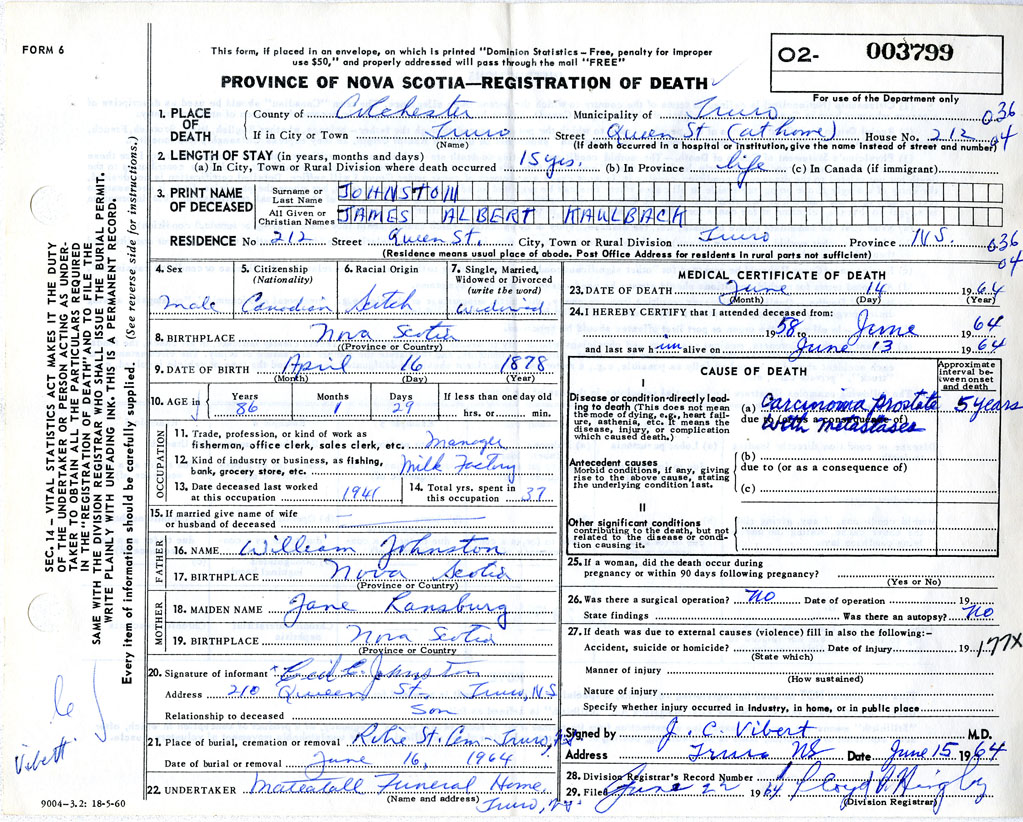 FORM 6
This form, if placed in an envelope, on which is printed "Dominion Statistics – Free, penalty for improper
use $50," and properly addressed will pass through the mail "FREE"
O2- 003799
For use of the Department only
PROVINCE OF NOVA SCOTIA—REGISTRATION OF DEATH
1. PLACE OF DEATH
County of Colchester Municipality of Truro 036
If in City or Town Truro Street Queen St (at home) House No. 212 04
(Name) (If death occurred in a hospital or institution, give the name instead of street and number)
2. LENGTH OF STAY (in years, months and days)
(a) In City, Town or Rural Division where death occurred 15 yrs. (b) In Province life (c) In Canada (if immigrant)
3. PRINT NAME OF DECEASED
Surname or Last Name JOHNSTON
All Given or Christian Names JAMES ALBERT KAULBACK
RESIDENCE No 212 Street Queen St. City, Town or Rural Division Truro Province N.S. 036
(Residence means usual place of abode. Post Office Address for residents in rural parts not sufficient) 04
4. Sex Male
5. Citizenship (Nationality) Canadian
6. Racial Origin Scotch
7. Single, Married, Widowed or Divorced (write the word) widowed
8. BIRTHPLACE Nova Scotia
(Province or Country)
9. DATE OF BIRTH April 16 1878
(Month) (Day) (Year)
10. AGE in Years 86 Months 1 Days 29 If less than one day old hrs. or min.
OCCUPATION
11. Trade, profession, or kind of work as
fishermen, office clerk, sales clerk, etc. Manager
12. Kind of industry or business, as fishing,
bank, grocery store, etc. Milk Factory
13. Date deceased last worked
at this occupation 1941
14. Total yrs. spent in
this occupation 37
15. If married give name of wife
or husband of deceased
FATHER
16. NAME William Johnston
17. BIRTHPLACE Nova Scotia
(Province or Country)
MOTHER
18. MAIDEN NAME Jane Ransburg
19. BIRTHPLACE Nova Scotia
(Province or Country
20. Signature of informant Johnston
Address 210 Queen St. Truro, N.S
Relationship to deceased Son
21. Place of burial, cremation or removal St. Cem Truro,
Date of burial or removal June 16, 1964
22. UNDERTAKER Funeral Home
(Name and address) Truro,
9004–3.2: 18-5-60
MEDICAL CERTIFICATE OF DEATH
23. DATE OF DEATH June 14 1964
(Month) (Day) (Year)
24. I HEREBY CERTIFY that I attended deceased from:
1958 to June 1964
and last saw him alive on June 13 1964
CAUSE OF DEATH
Approximate interval between onset and death
I
Disease or condition directly leading to death (This does not mean the mode of dying, e.g., heart failure, asthenia, etc. It means the disease, injury, or complication which caused death.)
(a) Carcinoma Prostate 5 years
with metastases
Antecedent causes
Morbid conditions, if any, giving
rise to the above cause, stating
the underlying condition last.
(b)
due to (or as a consequence of)
(c)
II
Other significant conditions
contributing to the death, but not
related to the disease or condition causing it.
25. If a woman, did the death occur during
pregnancy or within 90 days following pregnancy?
(Yes or No)
26. Was there a surgical operation? No Date of operation 19
State findings Was there an autopsy? No
27. If death was due to external causes (violence) fill in also the following:–
Accident, suicide or homicide? Date of injury 19 177X
(State which)
Manner of injury
(How sustained)
Nature of injury
Specify whether injury occurred in industry, in home, or in public place
Signed by J. C. Vibert M.D.
Address Truro NS Date June 15 1964
28. Division Registrar's Record Number
29. Filed June 22 1964
(Division Registrar)
SEC. 14 – VITAL STATISTICS ACT MAKES IT THE DUTY
OF THE UNDERTAKER OR PERSON ACTING AS UNDERTAKER TO OBTAIN ALL THE PARTICULARS REQUIRED
IN THE "REGISTRATION OF DEATH" AND TO FILE THE
SAME WITH THE DIVISION REGISTRAR WHO SHALL ISSUE THE BURIAL PERMIT.
WRITE PLAINLY WITH UNFADING INK. THIS IS A PERMANENT RECORD.
Every item of information should be carefully supplied. (See reverse side for instructions.)